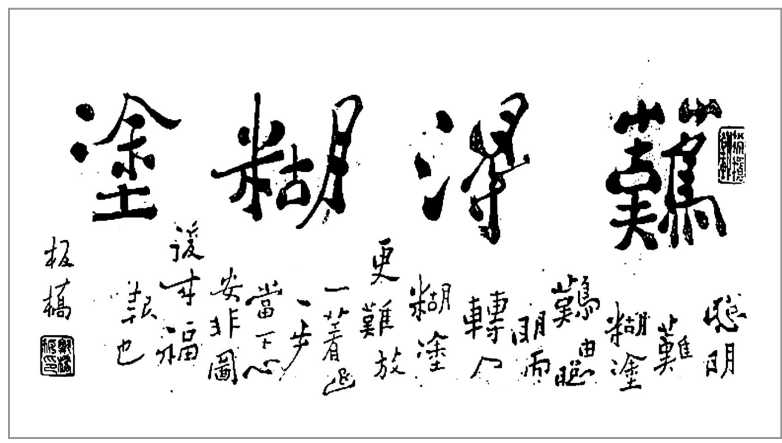 難得糊塗
聰明
難
糊塗
難由聰
明而
轉入
糊塗
更難放
一著退
一步
當下心
安非圖
後来福
報也
板橋